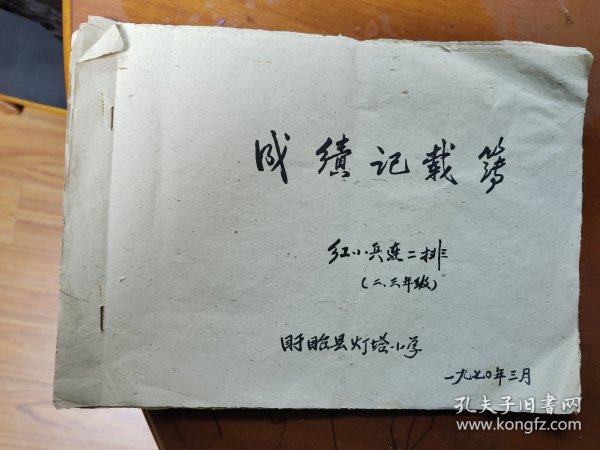 成绩记载簿
红小兵连二排
(二、三年级)
盱眙县灯塔小学
一九七〇年三月
孔夫子旧书网
www.kongfz.com